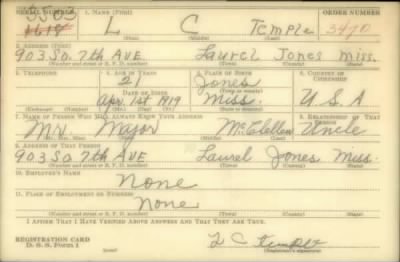 SERIAL NUMBER 1. NAME (Print) ORDER NUMBER
5503
1618 L C Temple 3470
(First) (Middle) (Last)
2. ADDRESS (Print)
903 So. 7th AVE Laurel Jones Miss.
(Number and street or R. F. D. number) (Town) (County) (State)
3. TELEPHONE 4. AGE IN YEARS 5. PLACE OF BIRTH 6. COUNTRY OF CITIZENSHIP
21 Jones
DATE OF BIRTH (Town or county)
Apr. 1st 1919 Miss. U.S.A
(Exchange) (Number) (Mo.) (Day) (Yr.) (State or country)
7. NAME OF PERSON WHO WILL ALWAYS KNOW YOUR ADDRESS 8. RELATIONSHIP OF THAT PERSON
Mr. Major McClellan Uncle
(Mr., Mrs., Miss) (First) (Middle) (Last)
9. ADDRESS OF THAT PERSON
903 So 7th AVE Laurel Jones Miss.
(Number and street or R. F. D. number) (Town) (County) (State)
10. EMPLOYER'S NAME
None
11. PLACE OF EMPLOYMENT OR BUSINESS
None
(Number and street or R. F. D. number) (Town) (County) (State)
I AFFIRM THAT I HAVE VERIFIED ABOVE ANSWERS AND THAT THEY ARE TRUE.
REGISTRATION CARD
D. S. S. Form 1 L C Temple
(Registrant's signature)